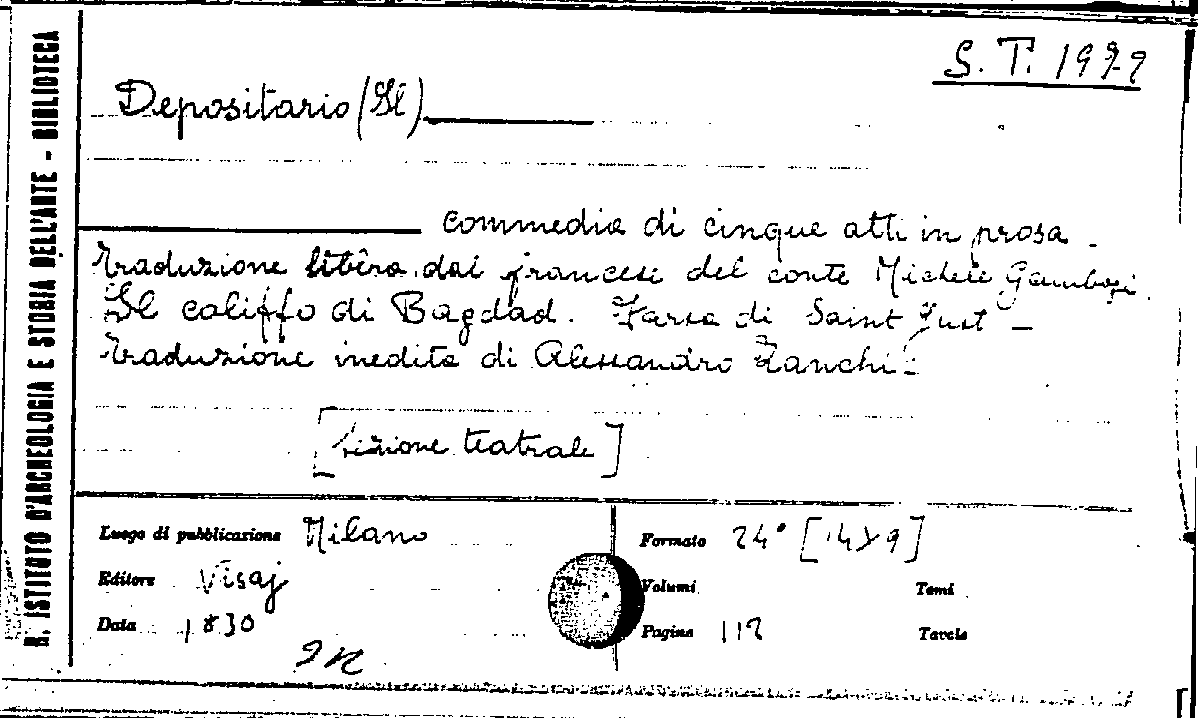 R. ISTITUTO D'ARCHEOLOGIA E STORIA DELL'ARTE - BIBLIOTECA
S. T. 1979
Depositario (Il)
commedia di cinque atti in prosa -
traduzione libera dal francese del conte Michele
Il califfo di Bagdad. Farsa di Saint Just -
traduzione inedita di Alessandro Zanchi -
[Sezione teatrale]
Luogo di pubblicazione Milano
Formato 24° [14×9]
Editore Visaj
Volumi
Tomi
Data 1830
Pagine 112
Tavole